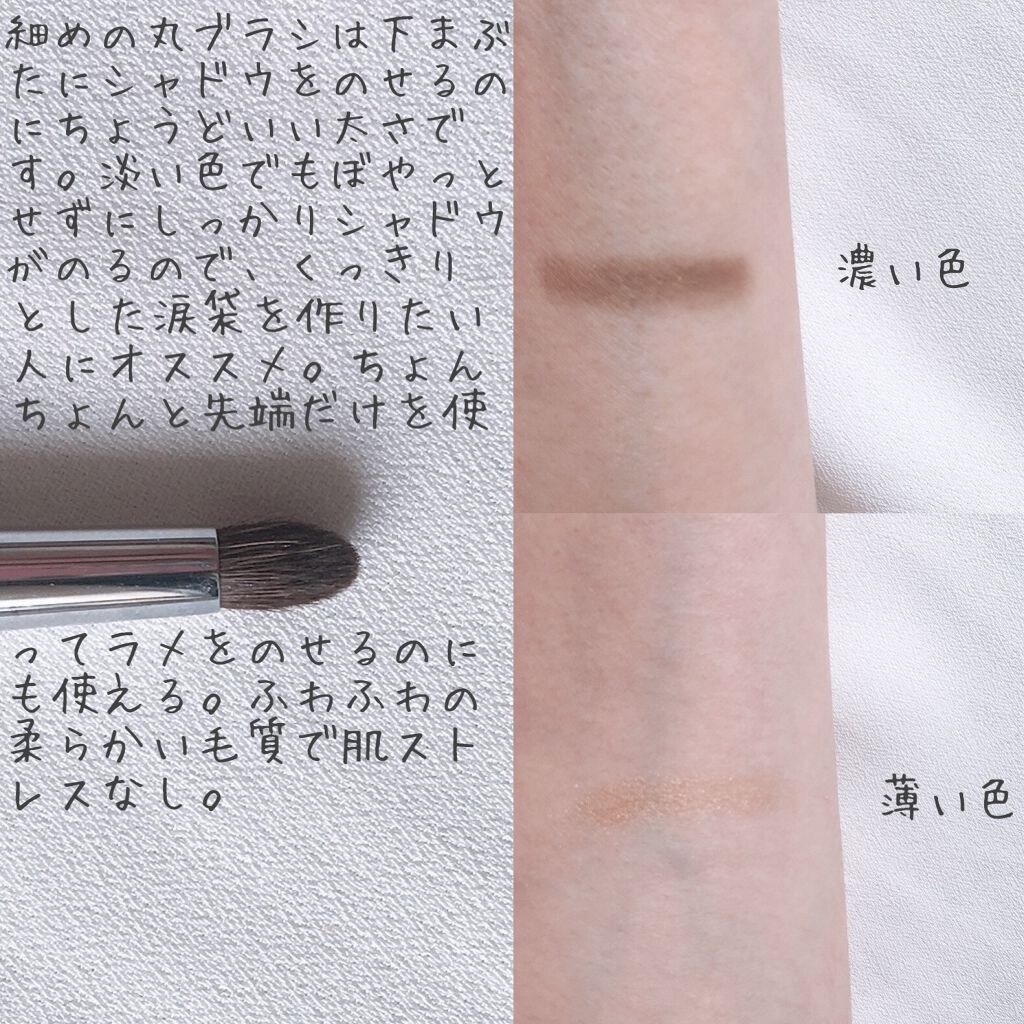 細めの丸ブラシは下まぶ
たにシャドウをのせるの
にちょうどいい太さで
す。淡い色でもぼやっと
せずにしっかりシャドウ
がのるので、くっきり
とした涙袋を作りたい
人にオススメ。ちょん
ちょんと先端だけを使
ってラメをのせるのに
も使える。ふわふわの
柔らかい毛質で肌スト
レスなし。
濃い色
薄い色